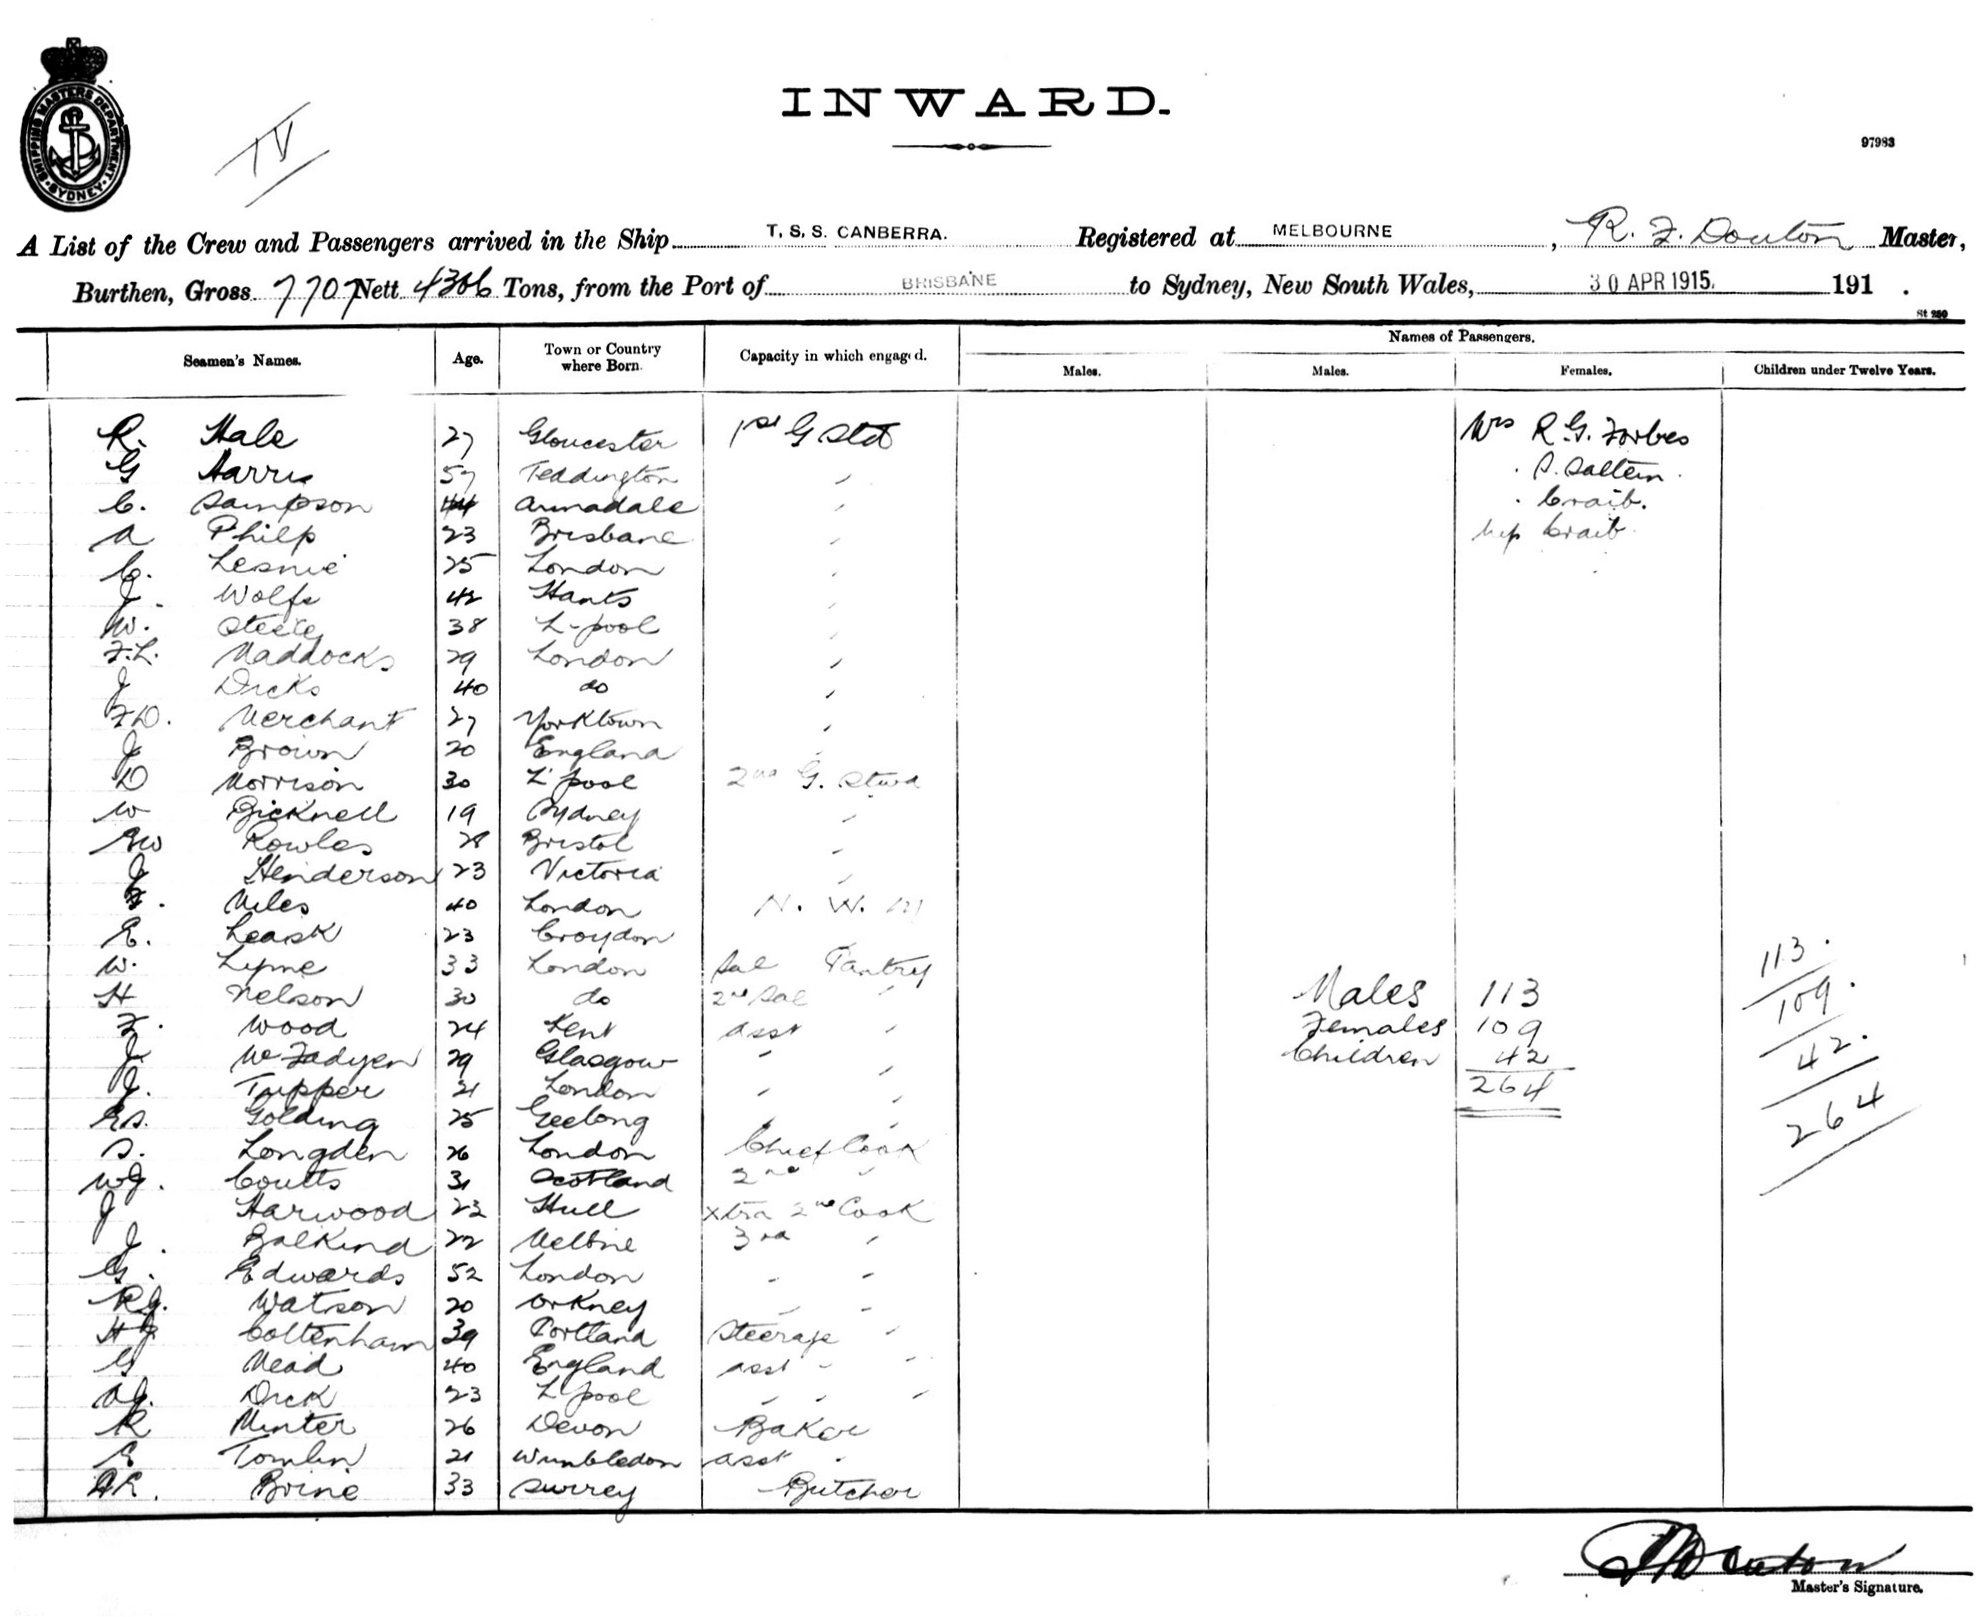 SHIPPING MASTERS DEPARTMENT. SYDNEY
IV
INWARD.
97983
A List of the Crew and Passengers arrived in the Ship T. S. S. CANBERRA. Registered at MELBOURNE, R. F. Douton Master,
Burthen, Gross 7707 Nett 4306 Tons, from the Port of BRISBANE to Sydney, New South Wales, 30 APR 1915. 191 .
St 250
Seamen's Names. Age. Town or Country where Born. Capacity in which engaged. Names of Passengers.
Males. Males. Females. Children under Twelve Years.
R. Hale 27 Gloucester 1st G Std Mrs R. G. Forbes
G Harris 57 Teddington " " S. Saltem
C. Sampson 44 Armadale " " Craib.
A Philp 23 Brisbane " Miss Craib
C. Lesnie 25 London "
J. Wolfe 42 Hants "
W. Steele 38 L-pool "
F.L. Maddocks 29 London "
J Dicks 40 do "
F.D. Merchant 27 Yorktown "
J Brown 20 England "
D Morrison 30 L'pool 2nd G. Stwd
W Bicknell 19 Sydney "
EW Rowles 28 Bristol "
J Henderson 23 Victoria "
F. Miles 40 London N. W. M
E. Leask 23 Croydon
W. Lyme 33 London Sal Pantry 113.
H Nelson 30 do 2nd Sal " Males 113 109.
F. Wood 24 Kent asst " Females 109
J McFadyen 29 Glasgow " " Children 42 42.
J. Tupper 21 London " " 264
ES. Golding 25 Geelong " " 264
S. Longden 26 London Chief Cook
WJ. Coutts 31 Scotland 2nd "
J Harwood 23 Hull Xtra 2nd Cook
J. Balkind 22 Melbne 3rd "
G. Edwards 52 London " "
RJ. Watson 20 Orkney " "
HJ Coltenham 39 Portland Steerage "
G Mead 40 England asst " "
AJ. Dick 23 L'pool " " "
R Minter 26 Devon Baker
E Tomlin 21 Wimbledon asst "
AL. Brine 33 Surrey Butcher
R F Douton
Master's Signature.